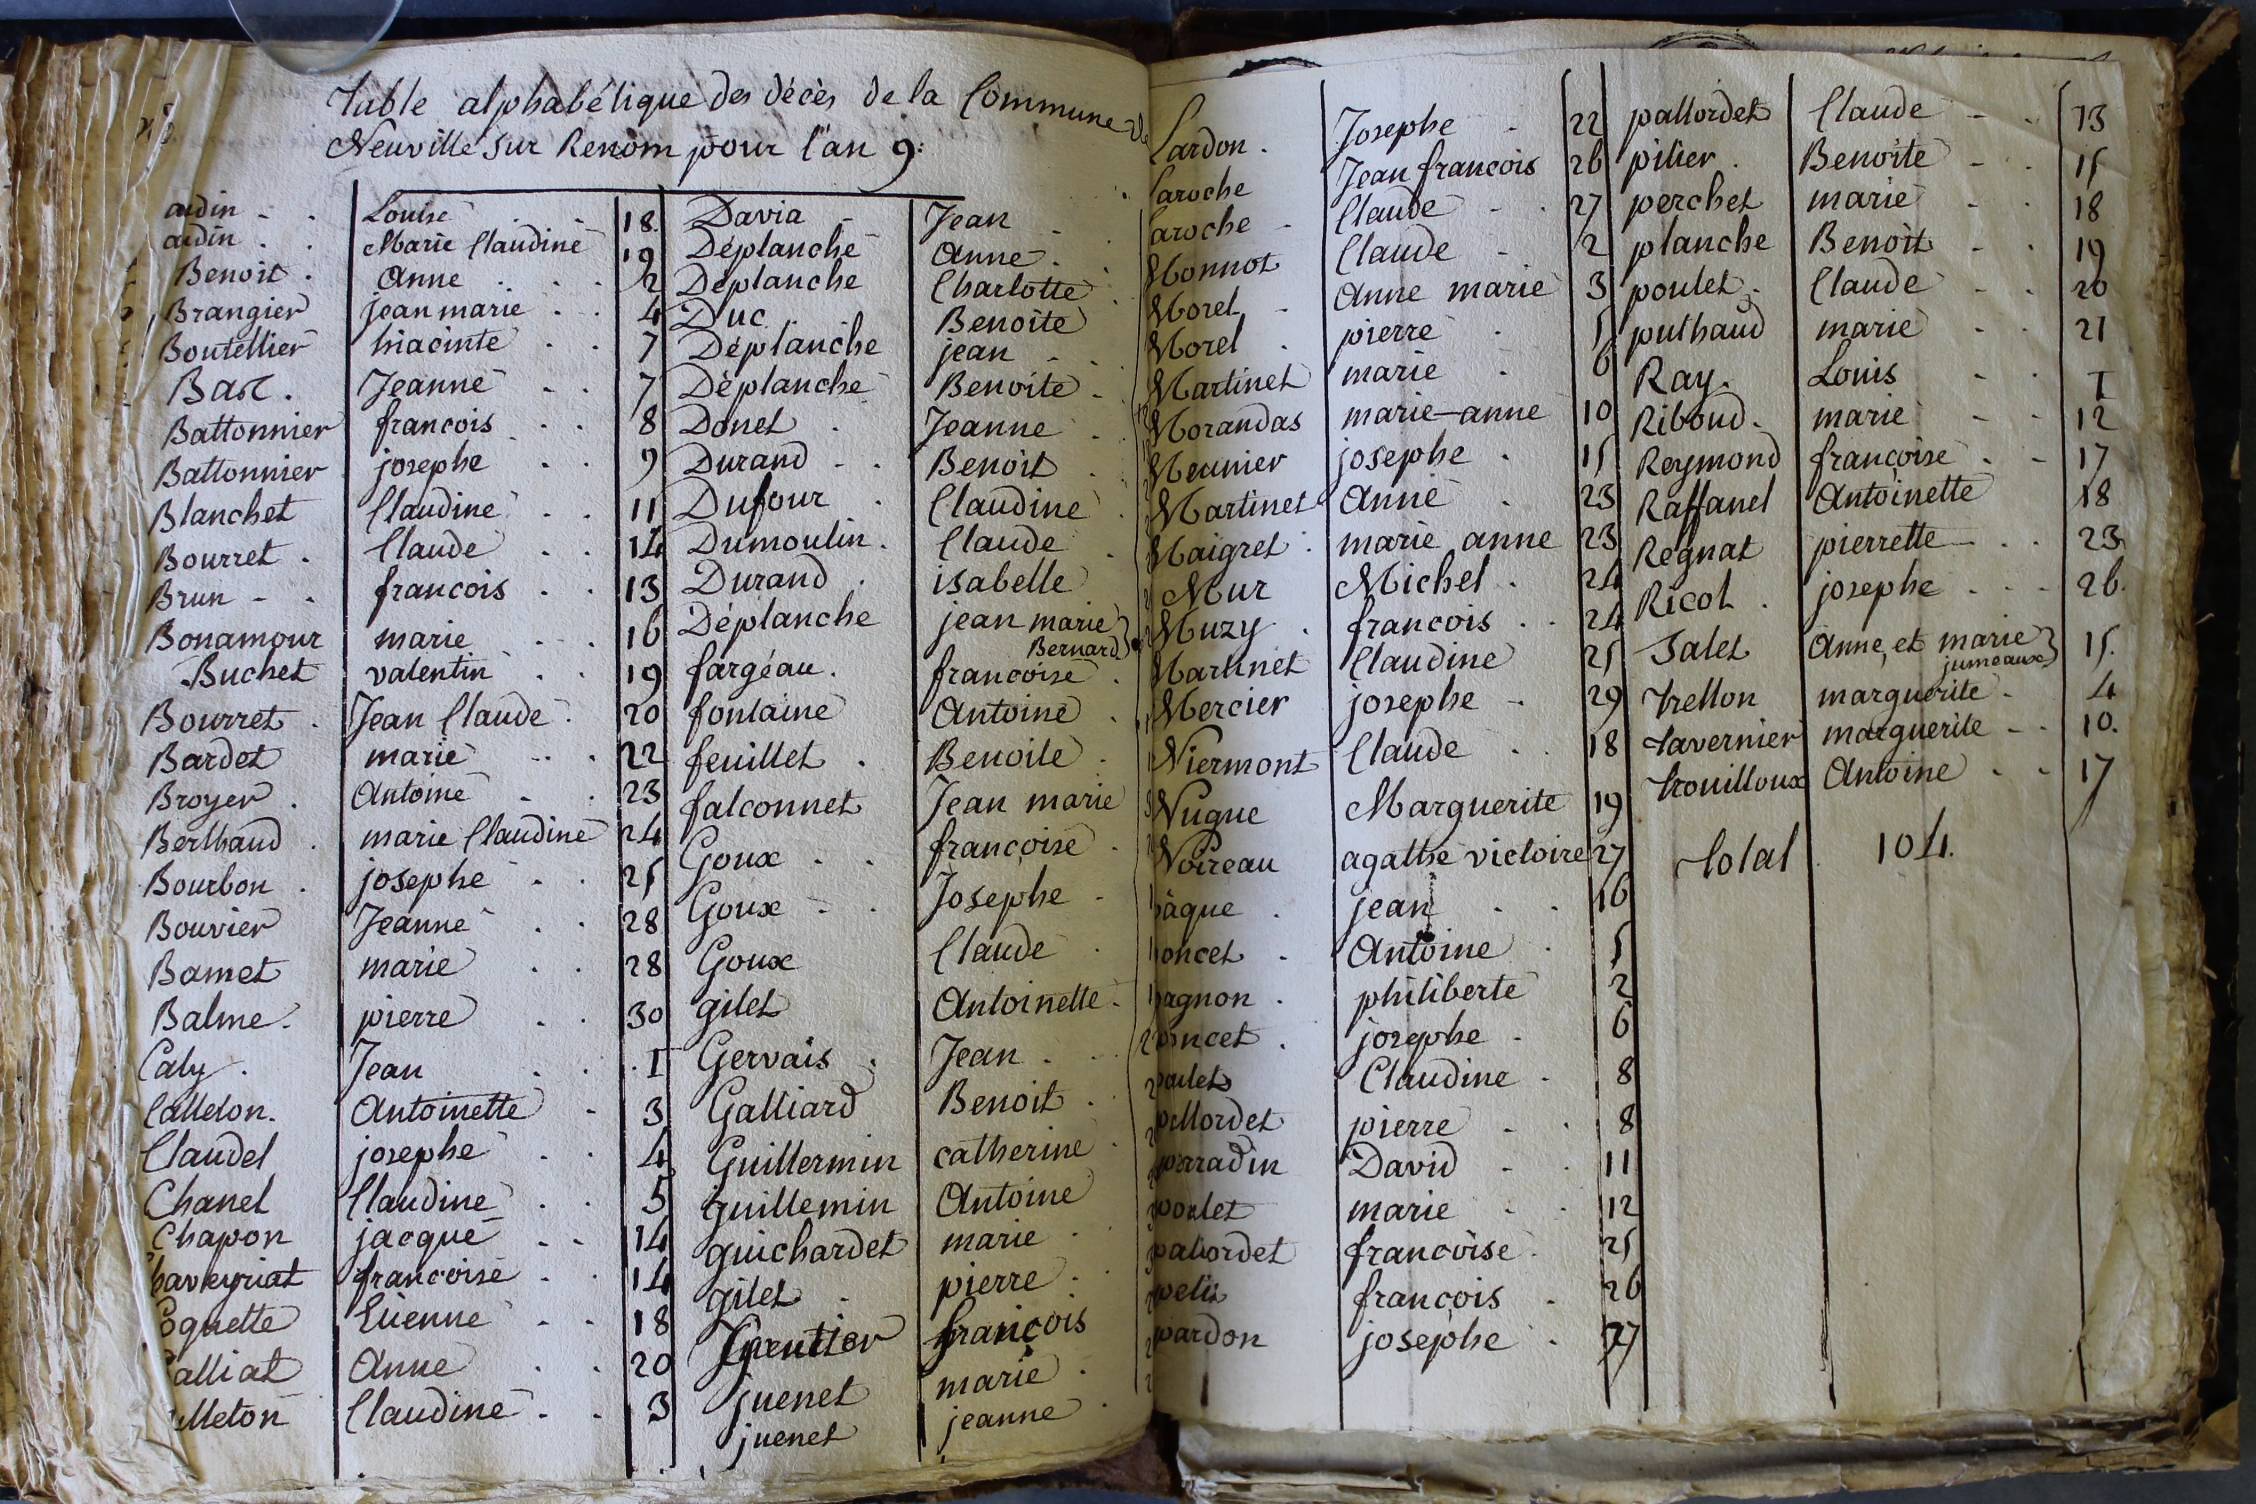 Table alphabétique des décès de la Commune de
Neuville sur Renom pour l'an 9:
audin - . Louise . . 18.
audin . . Marie Claudine 19
Benoit . Anne . . . 2
Brangier jean marie . . 4
Boutellier hiacinte . . 7
Bac . Jeanne . . 7
Battonnier francois . . 8
Battonnier josephe . . 9
Blanchet Claudine . . 11
Bourret . Claude . . 14
Brun - . francois . . 13
Bonamour marie . . 16
Buchet valentin . . 19
Bourret . Jean Claude . 20
Bardet marie . . 22
Broyer . Antoine . . 23
Berthaud . marie Claudine 24
Bourbon . josephe . . 25
Bouvier Jeanne . . 28
Bamet marie . . 28
Balme . pierre . . 30
Caly . Jean . . I
Calleton . Antoinette - 3
Claudel josephe . . 4
Chanel Claudine . . 5
Chapon jacque . . 14
haveyriat francoise . . 14
oquette Etienne . . 18
alliat Anne . . 20
lleton Claudine . . 3
Davia - Jean
Déplanche Anne
Déplanche Charlotte
Duc Benoite
Déplanche jean
Déplanche Benoite
Donet . Jeanne
Durand - . Benoit
Dufour . Claudine
Dumoulin . Claude
Durand . isabelle
Déplanche jean marie
Bernard
fargéau . francoise
fontaine Antoine
feuillet . Benoite
falconnet Jean marie
Goux . . francoise
Goux - . Josephe
Goux Claude
gilet Antoinette
Gervais . Jean
Galliard Benoit
Guillermin catherine
guillemin Antoine
guichardet marie
gilet . pierre
francois
juenet marie
juenet jeanne
Lardon . Josephe - 22
Laroche Jean francois 26
Laroche - Claude - . 27
Monnot Claude - 2
Morel - Anne marie 3
Morel . pierre . 5
Martinet marie . 6
Morandas marie-anne 10
Meunier josephe . 15
Martinet Anne . 23
Maigret . marie anne 23
Mur Michel . 24
Muzy . francois . . 24
Martinet Claudine 25
Mercier josephe - 29
Niermont Claude . . 18
Nugue Marguerite 19
Noireau agathe victoire 27
pâque . jean . . 16
poncet . Antoine . 5
pagnon . philiberte 2
poncet . josephe . 6
poulet Claudine . 8
pallordet pierre - . 8
perradin David - . 11
poulet marie - . 12
pallordet francoise . 25
petit francois . 26
pardon josephe . 27
pallordet Claude - . 13
pilier . Benoite - . 15
perchet marie . . 18
planche Benoit - . 19
poulet . Claude - . 20
puthaud marie - . 21
Ray . Louis - . I
Riboud . marie - - 12
Reymond francoise . - 17
Raffanel Antoinette 18
Regnat pierrette . . 23
Ricol . josephe . . - 26.
Salet Anne, et marie 15.
jumeaux
trellon marguerite . 4
tavernier marguerite - . 10.
trouilloux Antoine . - 17
total 104.